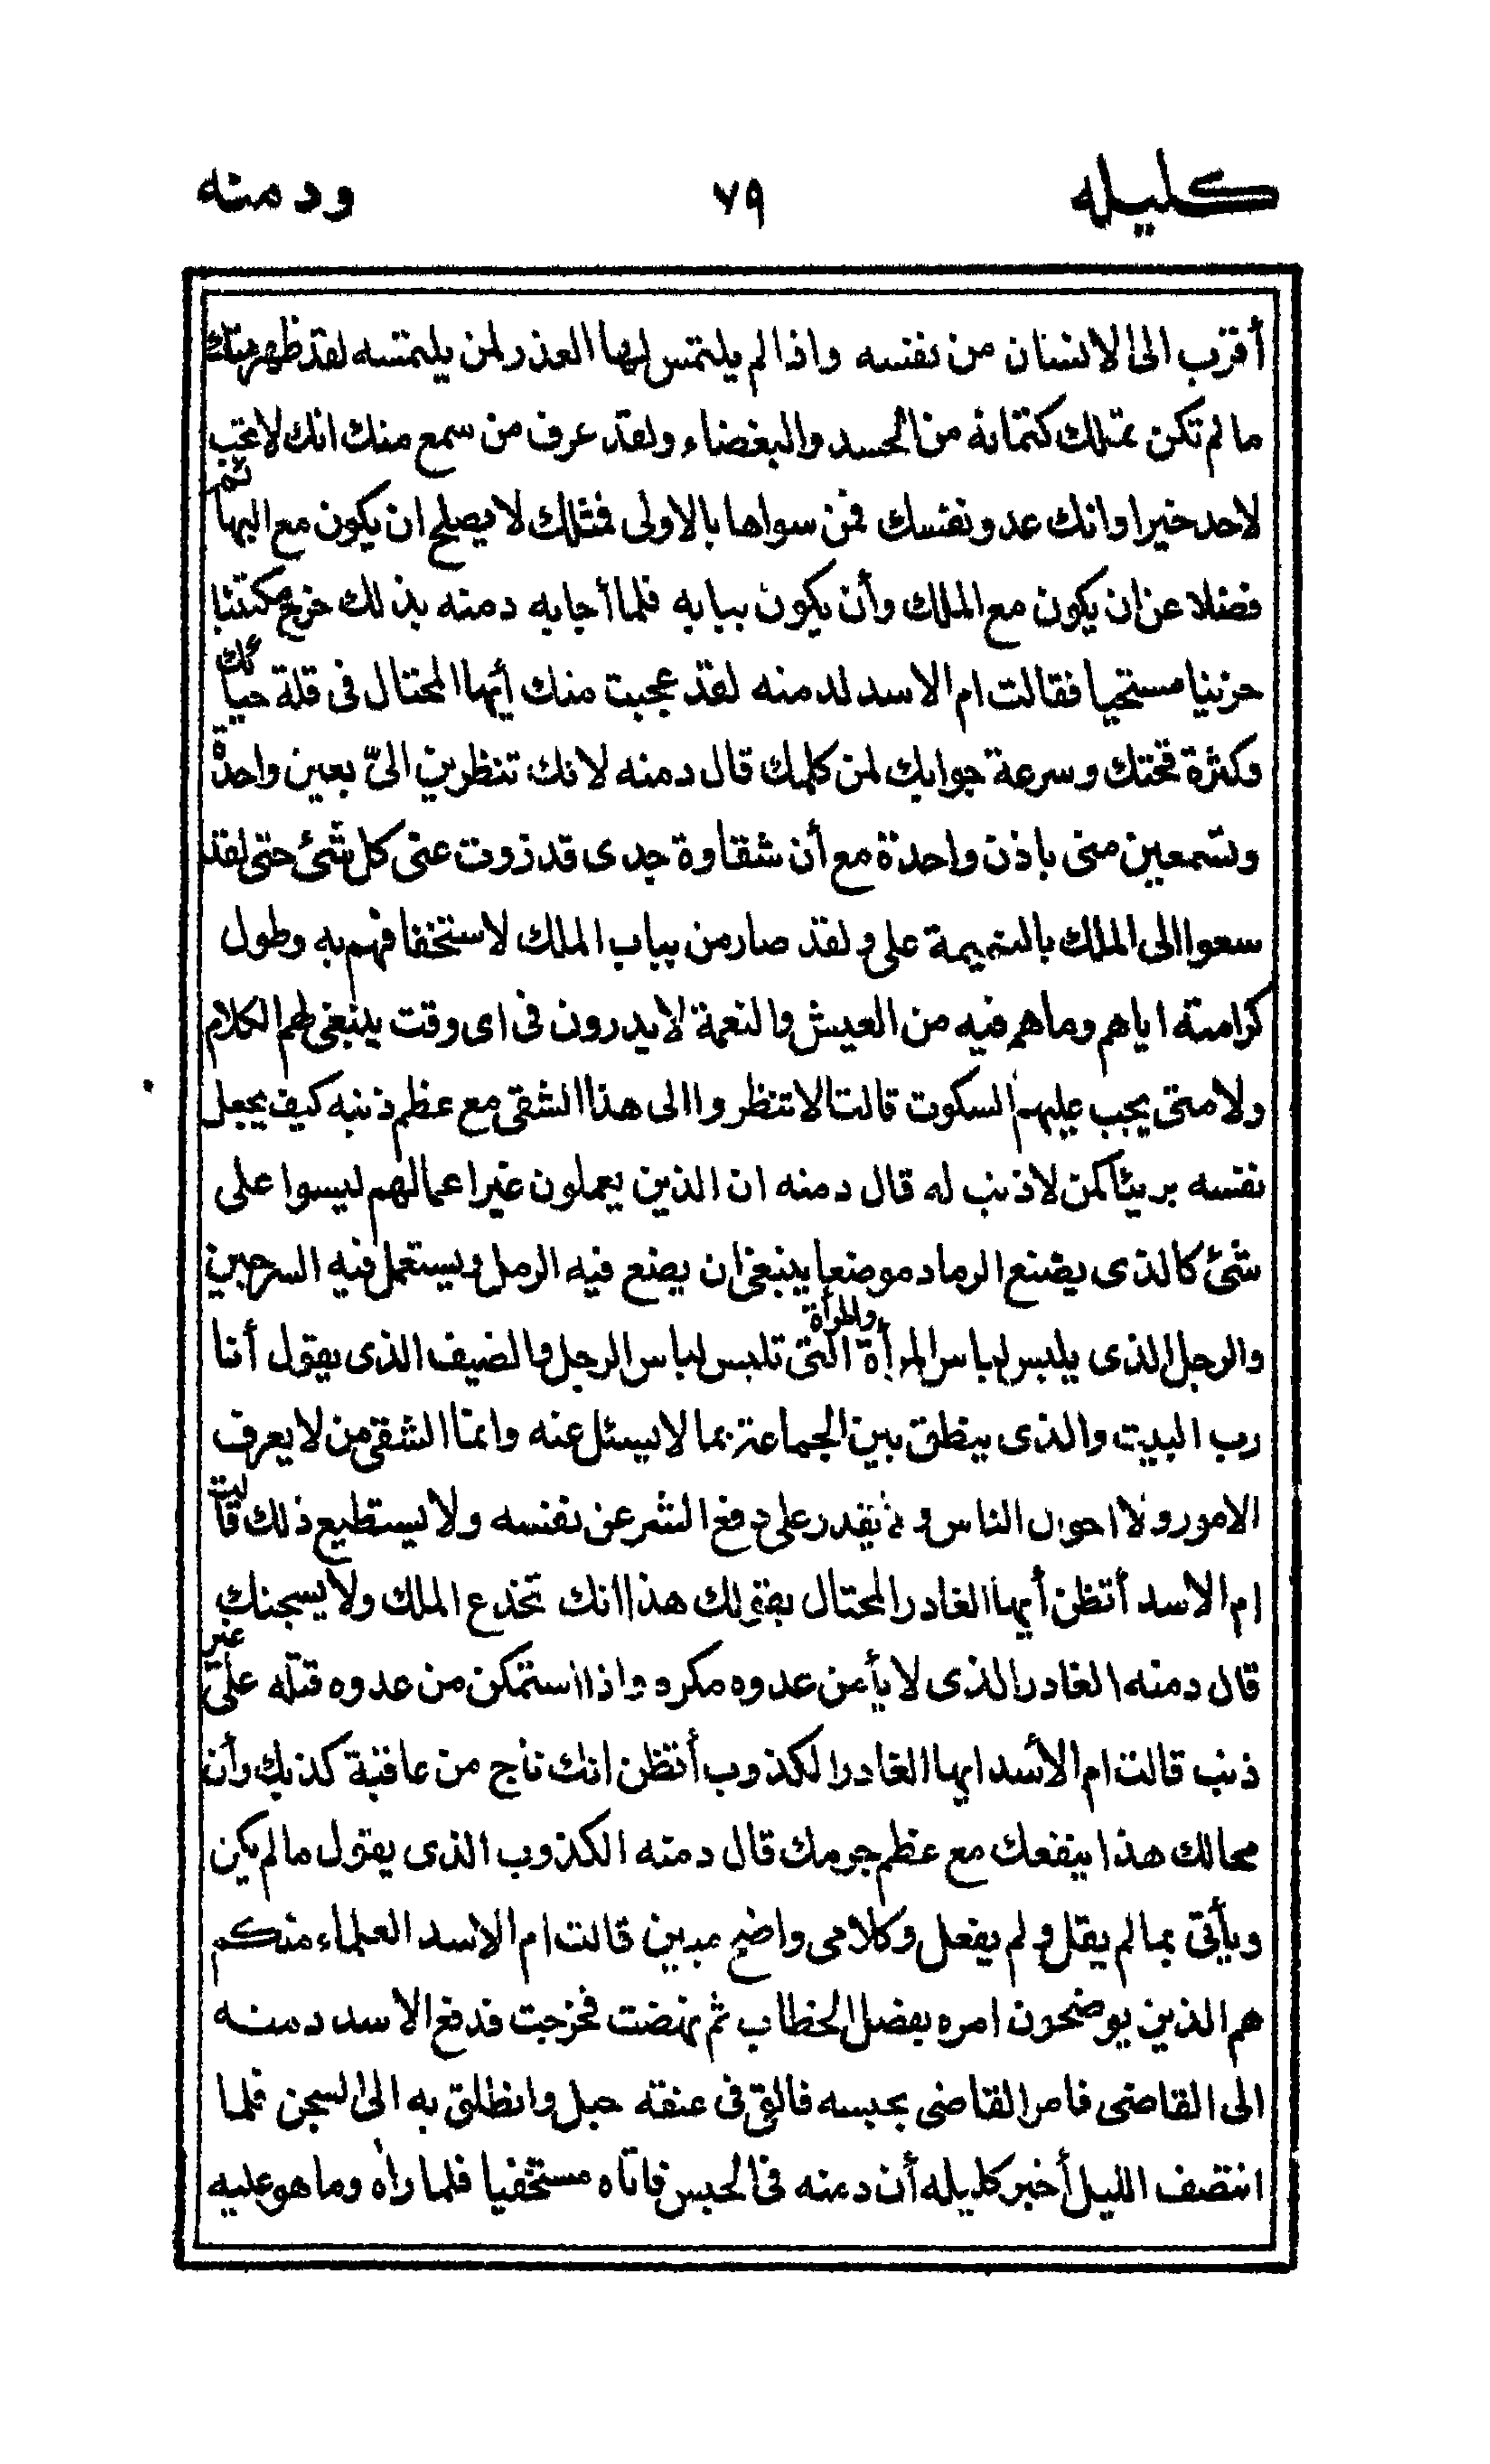 كليله ٧٩ ودمنه
أقرب الى الانسان من نفسه واذا لم يلتمس لها العذر لمن يلتمسه لقد ظهر منك
ما لم تكن تملك كتمانه من الحسد والبغضاء ولقد عرف من سمع منك انك لا تحب
لاحد خيرا وانك عدو نفسك فمن سواها بالاولى فمثلك لا يصلح ان يكون مع البهائم
فضلا عن ان يكون مع الملك وأن يكون ببابه فلما أجابه دمنه بذلك خرج مكتئبا
حزينا مستحيا فقالت ام الاسد لدمنه لقد عجبت منك أيها المحتال فى قلة حيائك
وكثرة قحتك وسرعة جوابك لمن كلمك قال دمنه لانك تنظرين الىّ بعين واحدة
وتسمعين منى باذن واحدة مع أن شقاوة جدى قد زوت عنى كل شئ حتى لقد
سعوا الى الملك بالنميمة على ولقد صار من بباب الملك لاستخفافهم به وطول
كرامته اياهم وما هم فيه من العيش والنعمة لا يدرون فى اى وقت ينبغى لهم الكلام
ولا متى يجب عليهم السكوت قالت الا تنظروا الى هذا الشقى مع عظم ذنبه كيف يجعل
نفسه بريئا كمن لا ذنب له قال دمنه ان الذين يعملون غير اعمالهم ليسوا على
شئ كالذى يضنع الرماد موضعا ينبغى ان يضع فيه الرمل ويستعمل فيه السرجين
والرجل الذى يلبس لباس المرأة والمرأة التى تلبس لباس الرجل والضيف الذى يقول أنا
رب البيت والذى ينطق بين الجماعة بما لا يسئل عنه وانما الشقى من لا يعرف
الامور ولا احوال الناس ولا يقدر على دفع الشر عن نفسه ولا يستطيع ذلك قالت
ام الاسد أتظن أيها الغادر المحتال بقولك هذا انك تخدع الملك ولا يسجنك
قال دمنه الغادر الذى لا يأمن عدوه مكره واذا استمكن من عدوه قتله على غير
ذنب قالت ام الأسد ايها الغادر الكذوب أتظن انك ناج من عاقبة كذبك وأن
محالك هذا ينفعك مع عظم جرمك قال دمنه الكذوب الذى يقول ما لم يكن
ويأتى بما لم يقل ولم يفعل وكلامى واضح مبين قالت ام الاسد العلماء منكم
هم الذين يوضحون امره بفضل الخطاب ثم نهضت فخرجت فدفع الاسد دمنه
الى القاضى فامر القاضى بحبسه فالقى فى عنقه حبل وانطلق به الى السجن فلما
انتصف الليل أخبر كليله أن دمنه فى الحبس فاتاه مستخفيا فلما راه وما هو عليه